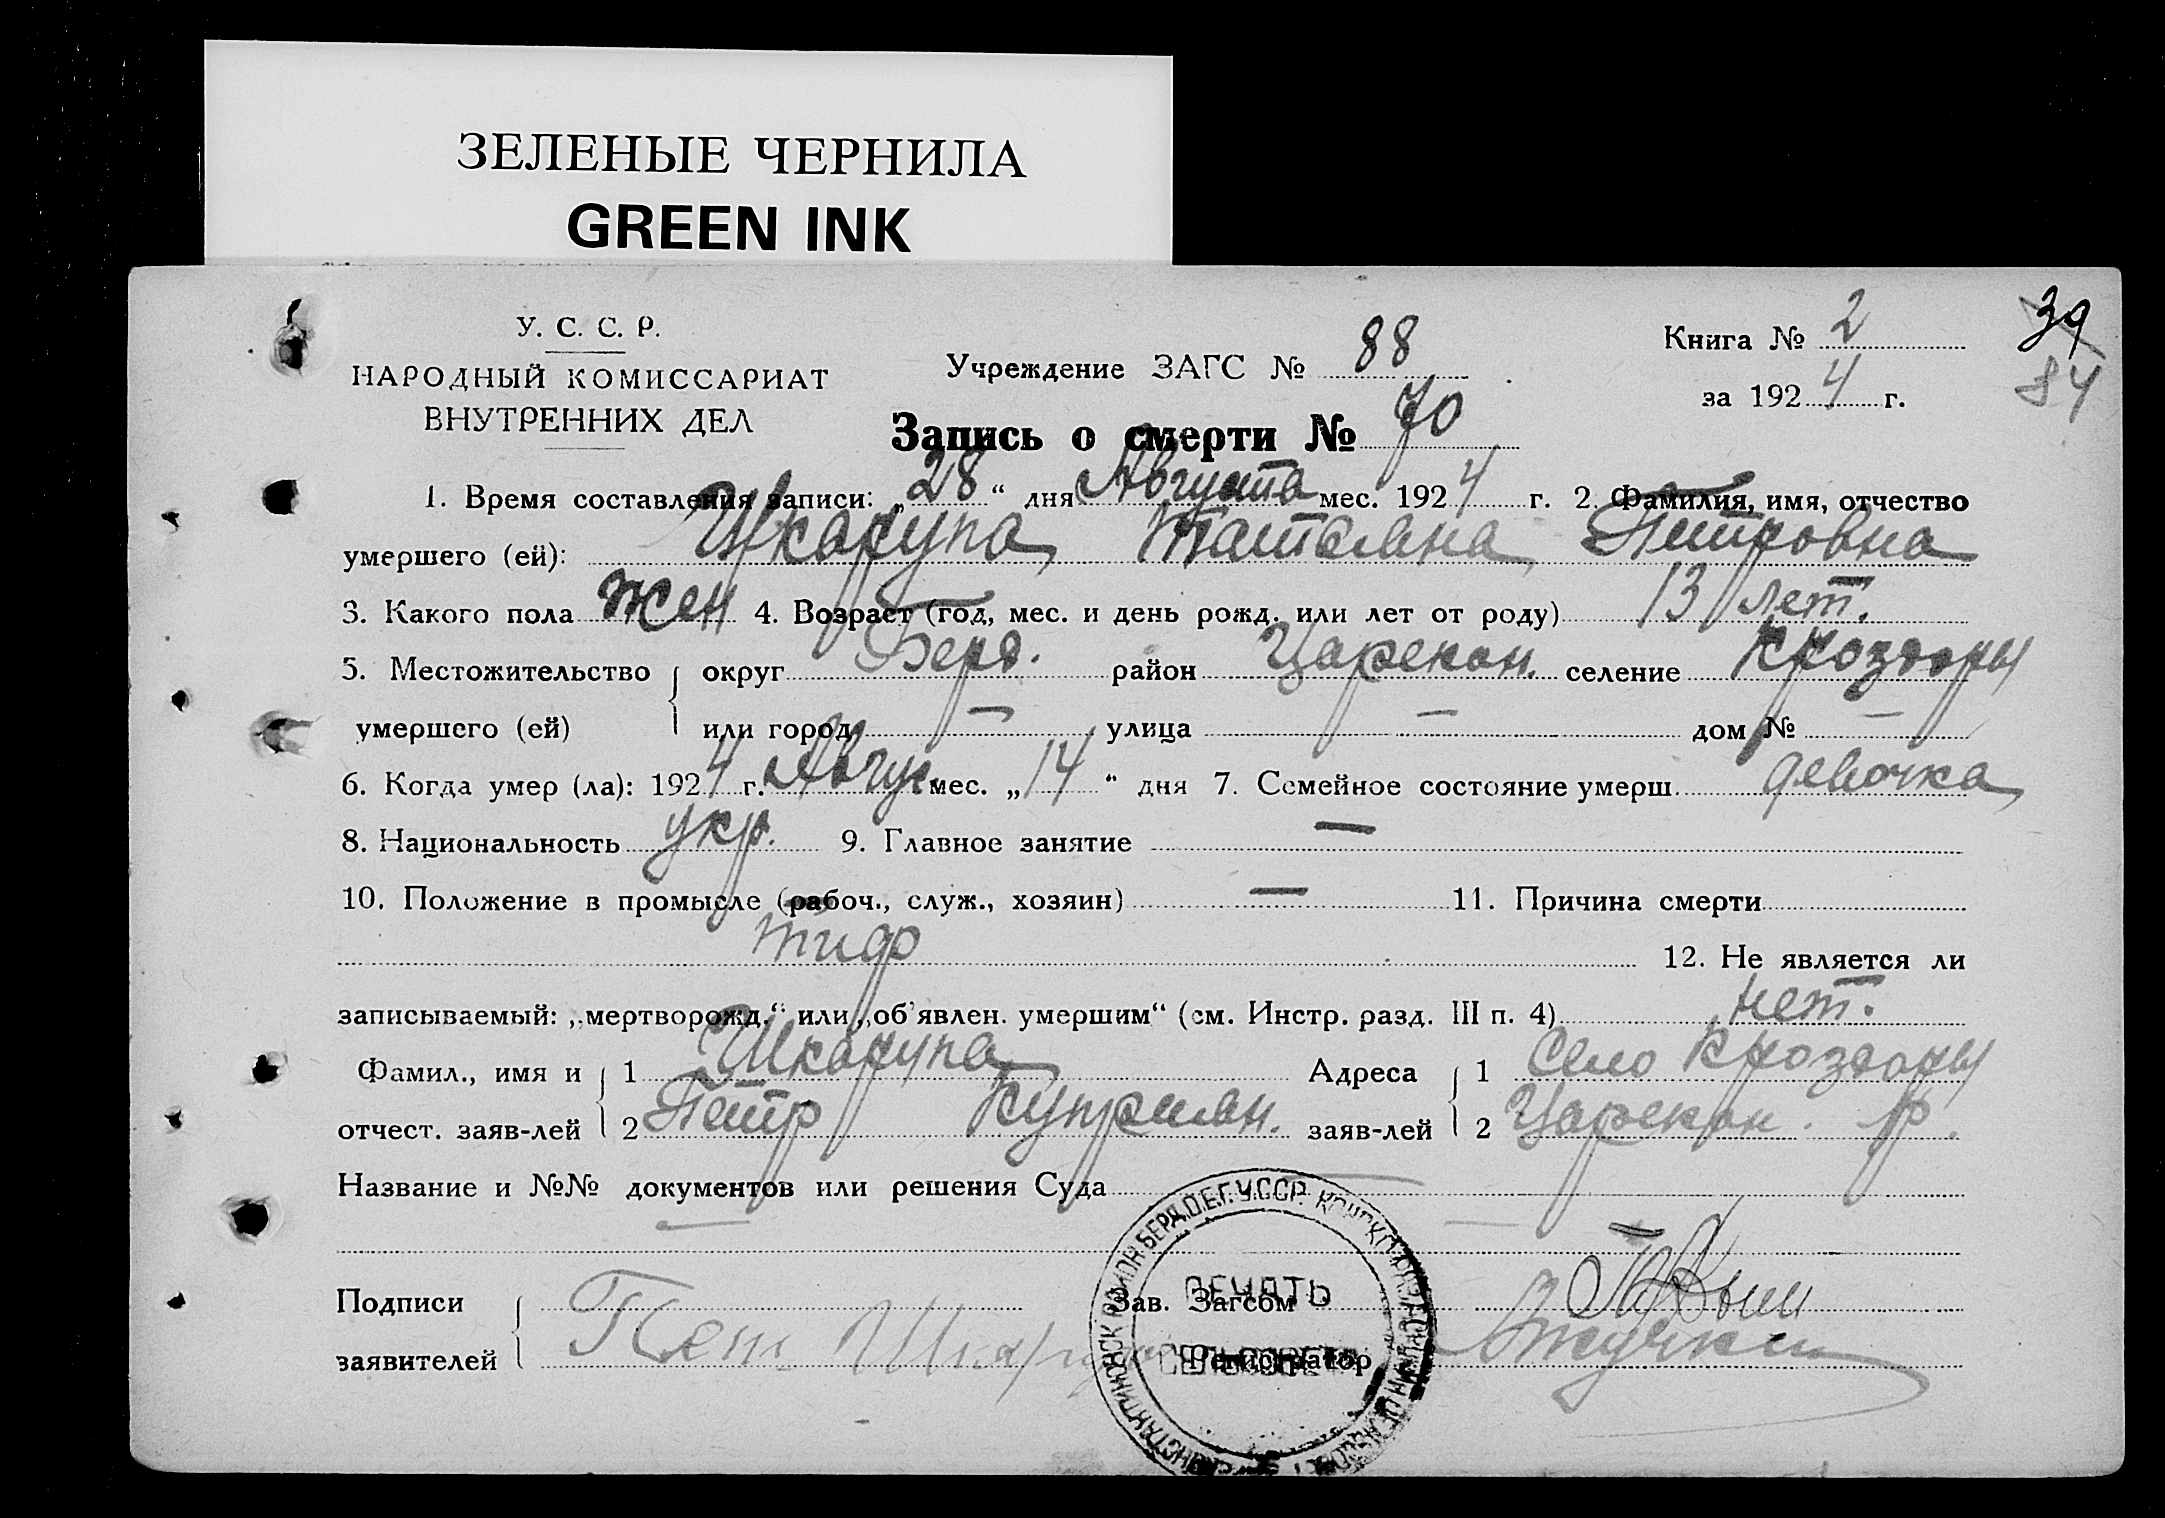 ЗЕЛЕНЫЕ ЧЕРНИЛА
GREEN INK
У. С. С. Р.
НАРОДНЫЙ КОМИССАРИАТ
ВНУТРЕННИХ ДЕЛ
Учреждение ЗАГС № 88
Книга № 2
39
за 1924 г.
84
Запись о смерти № 70
1. Время составления записи: „28“ дня Августа мес. 1924 г. 2. Фамилия, имя, отчество
умершего (ей): Шкарупа Татьяна Петровна
3. Какого пола жен 4. Возраст (год, мес. и день рожд. или лет от роду) 13 лет.
5. Местожительство округ Берд. район Царекон. селение К Роздоры
умершего (ей) или город — улица — дом № —
6. Когда умер (ла): 1924 г. Авгус. мес. „14“ дня 7. Семейное состояние умерш. девочка
8. Национальность укр. 9. Главное занятие —
10. Положение в промысле (рабоч., служ., хозяин) — 11. Причина смерти
тиф 12. Не является ли
записываемый: „мертворожд.“ или „об'явлен. умершим“ (см. Инстр. разд. III п. 4) нет.
Фамил., имя и 1 Шкарупа Адреса 1 Село К Роздоры
отчест. заяв-лей 2 Петр Куприян. заяв-лей 2 Царекон. р.
Название и №№ документов или решения Суда —
Подписи Зав. Загсом
заявителей Пет Шкарупа Регистратор
ПЕЧАТЬ
СЕЛЬСОВЕТА
РАЙОН БЕРД. О. Е.Г. У.С.С.Р.